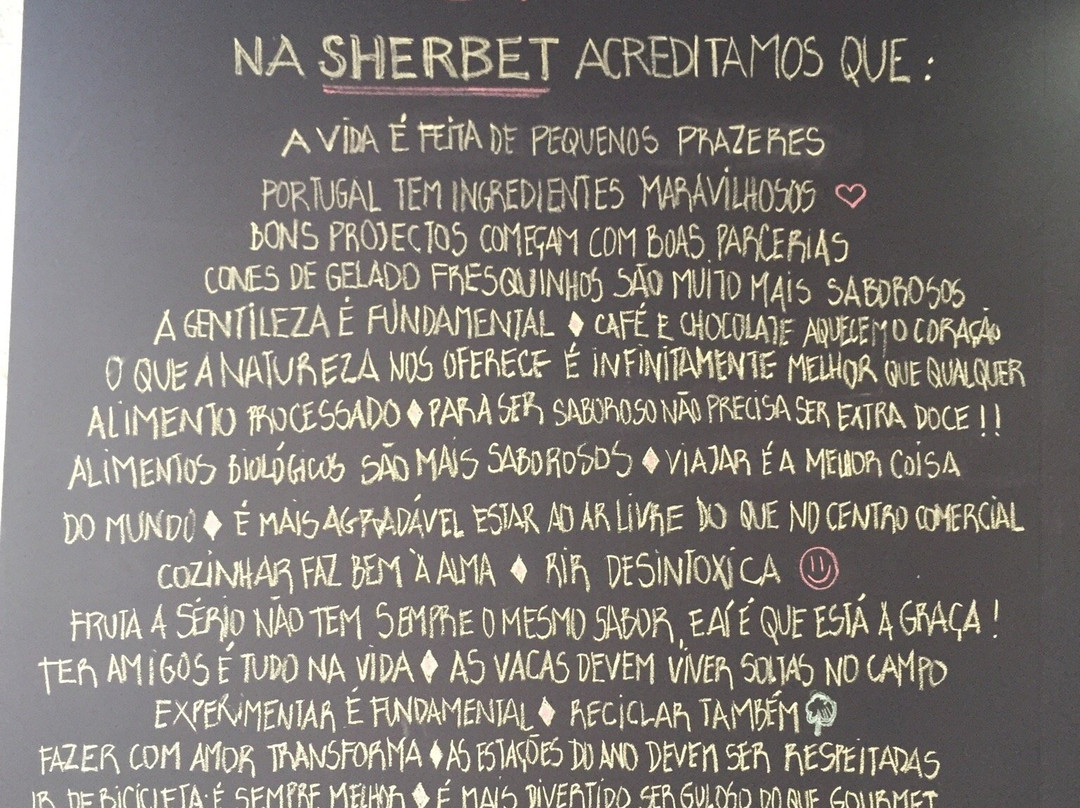 NA SHERBET ACREDITAMOS QUE:
A VIDA É FEITA DE PEQUENOS PRAZERES
PORTUGAL TEM INGREDIENTES MARAVILHOSOS ♡
BONS PROJECTOS COMEÇAM COM BOAS PARCERIAS
CONES DE GELADO FRESQUINHOS SÃO MUITO MAIS SABOROSOS
A GENTILEZA É FUNDAMENTAL ♦ CAFÉ E CHOCOLATE AQUECEM O CORAÇÃO
O QUE A NATUREZA NOS OFERECE É INFINITAMENTE MELHOR QUE QUALQUER
ALIMENTO PROCESSADO ♦ PARA SER SABOROSO NÃO PRECISA SER EXTRA DOCE !!
ALIMENTOS BIOLÓGICOS SÃO MAIS SABOROSOS ♦ VIAJAR É A MELHOR COISA
DO MUNDO ♦ É MAIS AGRADÁVEL ESTAR AO AR LIVRE DO QUE NO CENTRO COMERCIAL
COZINHAR FAZ BEM À ALMA ♦ RIR DESINTOXICA ☺
FRUTA A SÉRIO NÃO TEM SEMPRE O MESMO SABOR, E AÍ É QUE ESTÁ A GRAÇA !
TER AMIGOS É TUDO NA VIDA ♦ AS VACAS DEVEM VIVER SOLTAS NO CAMPO
EXPERIMENTAR É FUNDAMENTAL ♦ RECICLAR TAMBÉM
FAZER COM AMOR TRANSFORMA ♦ AS ESTAÇÕES DO ANO DEVEM SER RESPEITADAS
IR DE BICICLETA É SEMPRE MELHOR ♦ É MAIS DIVERTIDO SER GULOSO DO QUE GOURMET